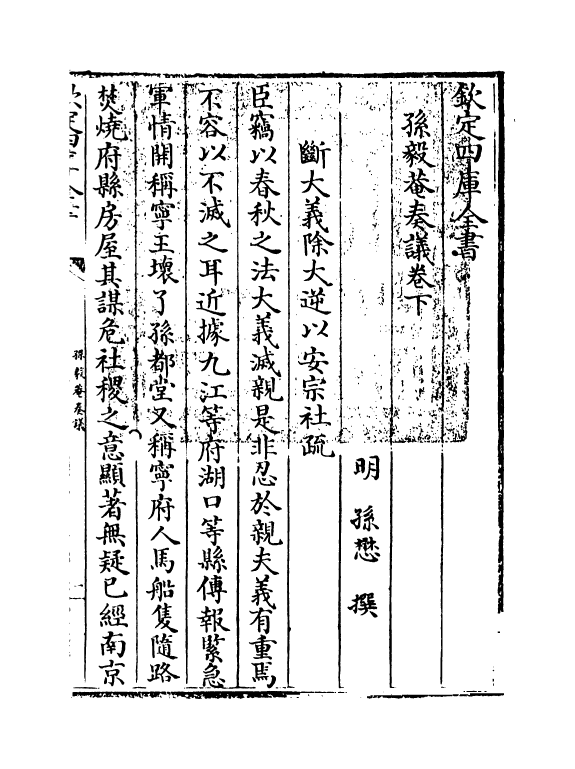 欽定四庫全書
孫毅菴奏議卷下
明 孫懋 撰
斷大義除大逆以安宗社疏
臣竊以春秋之法大義滅親是非忍於親夫義有重焉
不容以不滅之耳近據九江等府湖口等縣傳報緊急
軍情開稱寧王壞了孫都堂又稱寧府人馬船隻隨路
焚燒府縣房屋其謀危社稷之意顯著無疑已經南京
欽定四庫全書
孫毅菴奏議
一